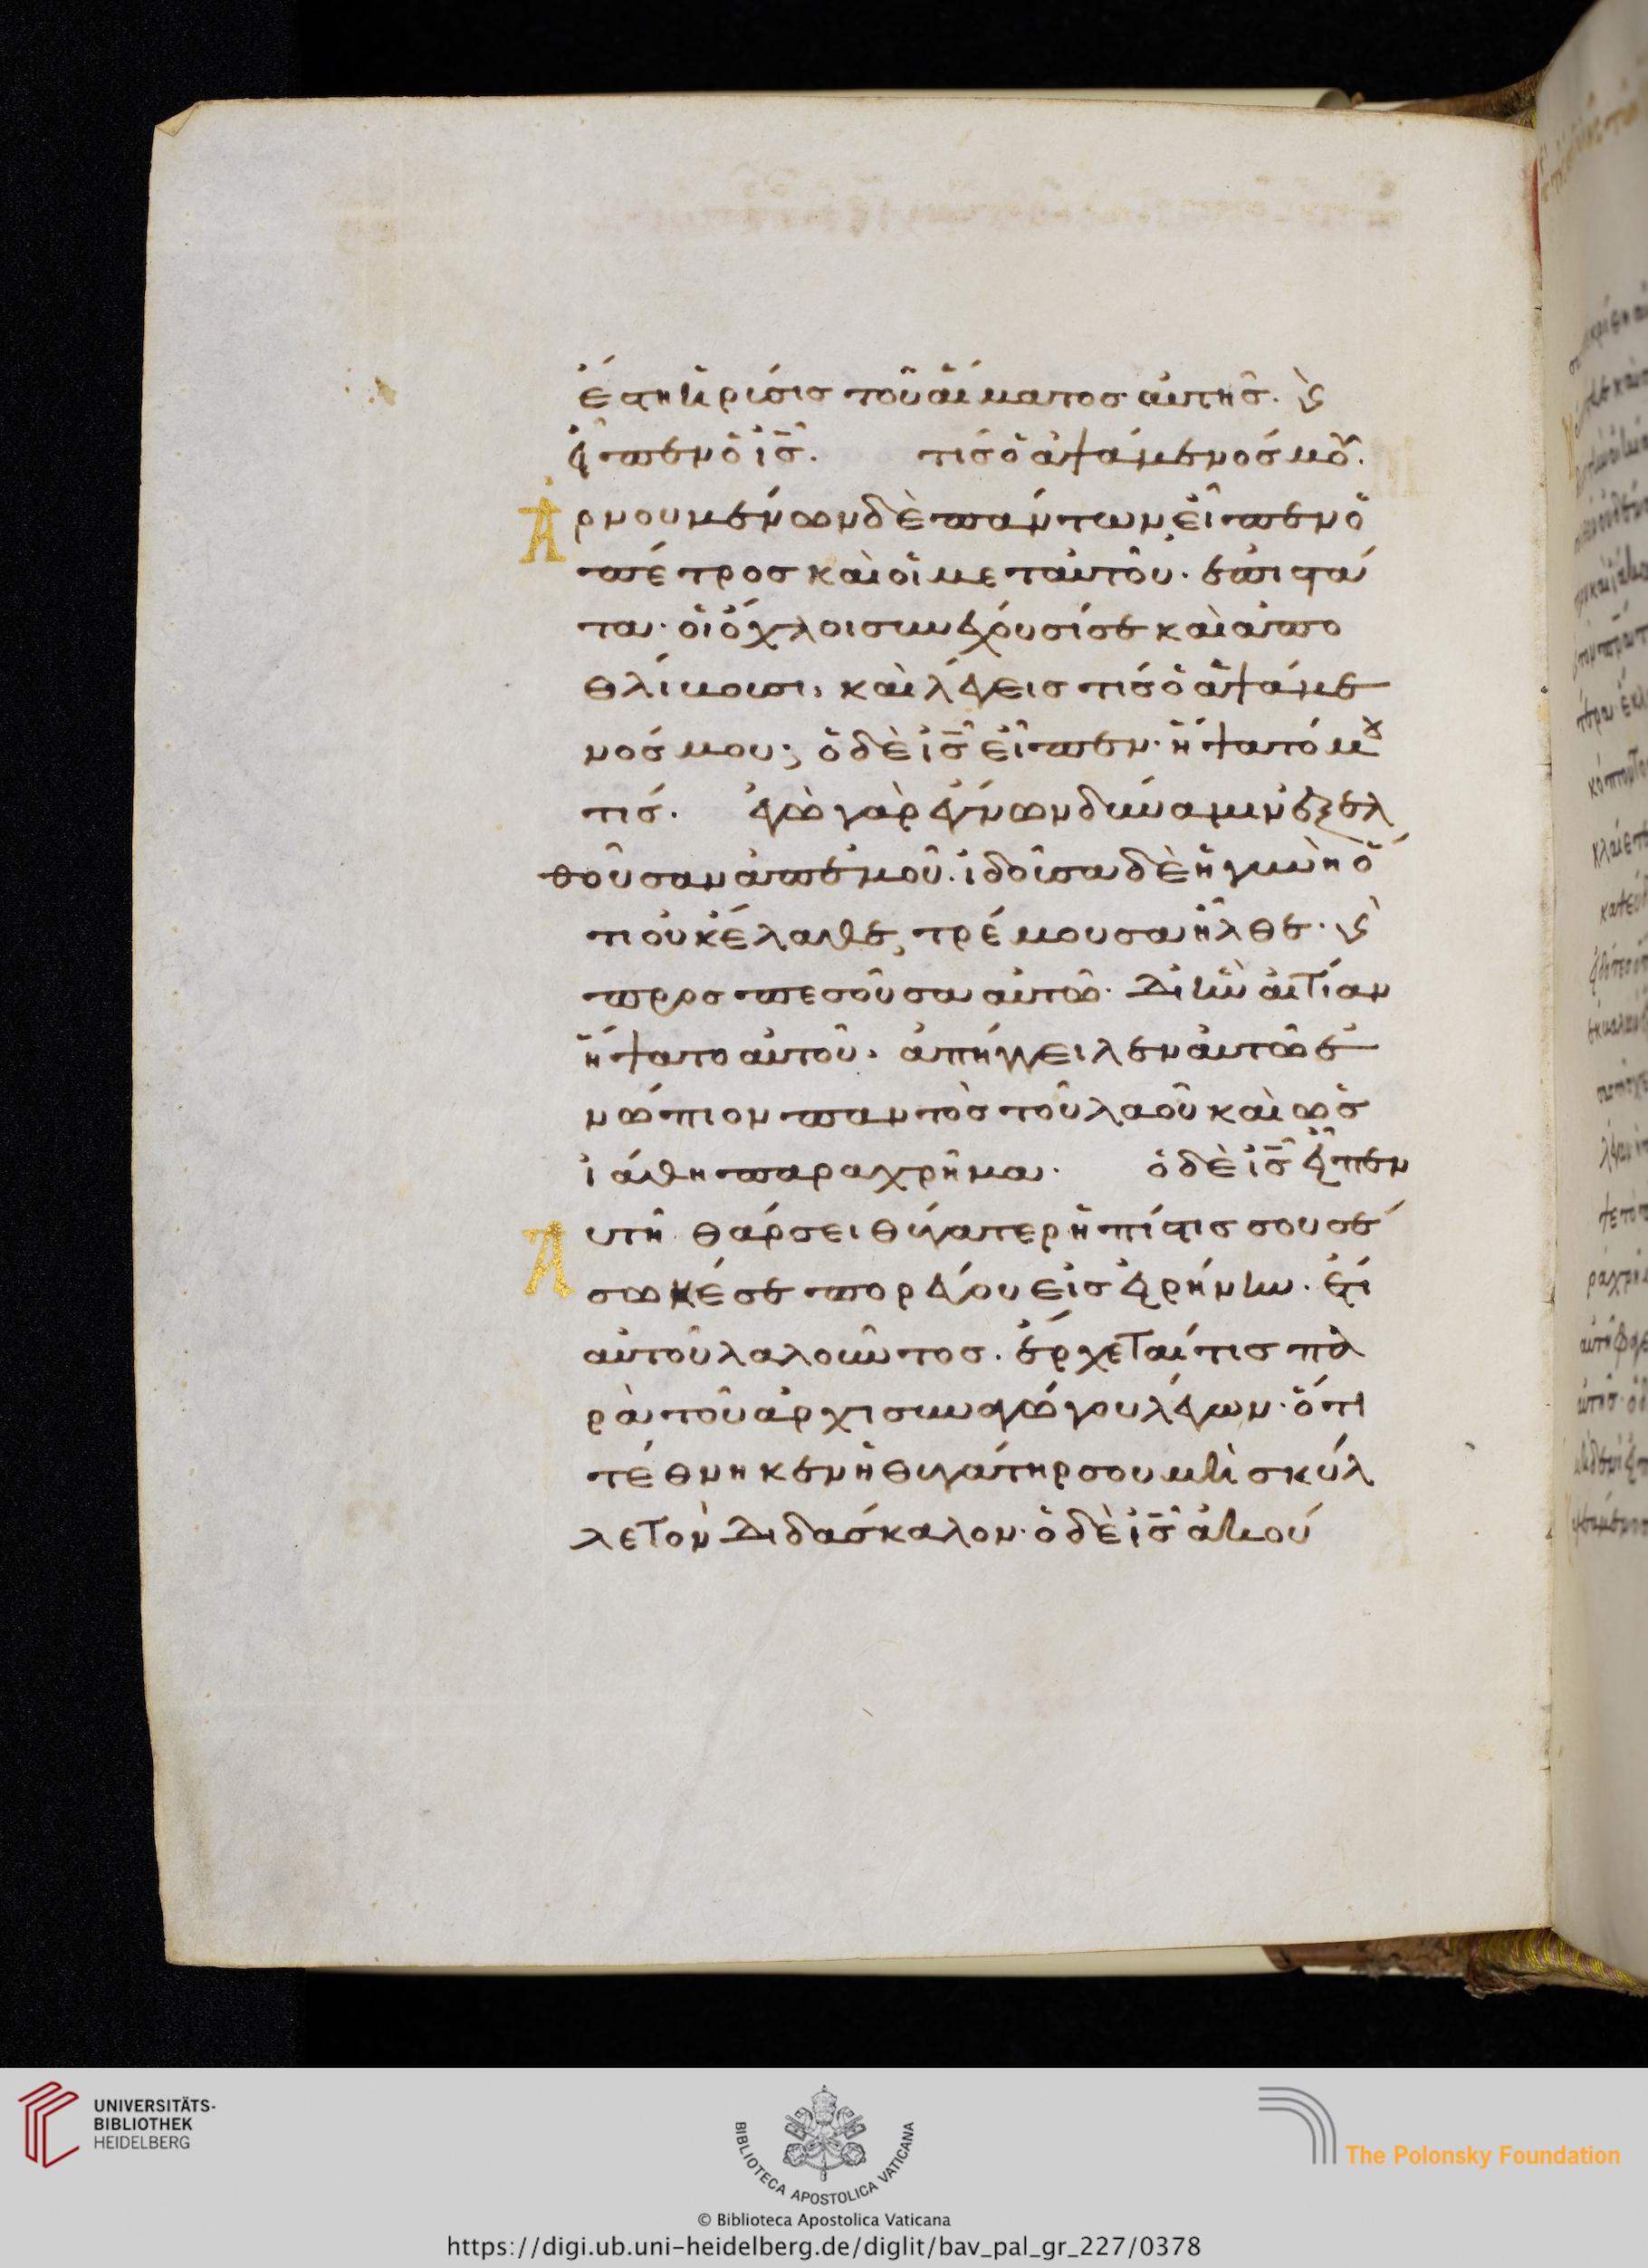 ἔστη ἡ ρύσις τοῦ αἵματος αὐτῆς. ϗ
εἶπεν ὁ ι̅ς̅. τίς ὁ ἁψάμενός μου.
Ἀρνουμένων δὲ πάντων εἶπεν ὁ
πέτρος καὶ οἱ μετ αὐτοῦ. ἐπιστά
τα. οἱ ὄχλοι συνέχουσί σε καὶ ἀπο
θλίβουσι, καὶ λέγεις τίς ὁ ἁψάμε
νός μου; ὁ δὲ ι̅ς̅ εἶπεν. ἥψατό μου
τίς. ἐγὼ γὰρ ἔγνων δύναμιν ἐξελ
θοῦσαν ἀπ ἐμοῦ. ἰδοῦσα δὲ ἡ γυνὴ ὅ
τι οὐκ ἔλαθε, τρέμουσα ἦλθε. ϗ
προσπεσοῦσα αὐτῶ. δι ἣν αἰτίαν
ἥψατο αὐτοῦ. ἀπήγγειλεν αὐτῶ ἐ
νώπιον παντὸς τοῦ λαοῦ καὶ ὡς
ἰάθη παραχρῆμα. ὁ δὲ ι̅ς̅ εἶπεν
Αὐτῆ θάρσει θύγατερ ἡ πίστις σου σέ
σωκέ σε πορεύου εἰς εἰρήνην. ἔτι
αὐτοῦ λαλοῦντος. ἔρχεταί τις πα
ρὰ τοῦ ἀρχισυναγώγου λέγων. ὅτι
τέθνηκεν ἡ θυγάτηρ σου μὴ σκύλ
λε τὸν διδάσκαλον. ὁ δὲ ι̅ς̅ ἀκού
UNIVERSITÄTS-
BIBLIOTHEK
HEIDELBERG
BIBLIOTECA APOSTOLICA VATICANA
The Polonsky Foundation
© Biblioteca Apostolica Vaticana
https://digi.ub.uni-heidelberg.de/diglit/bav_pal_gr_227/0378